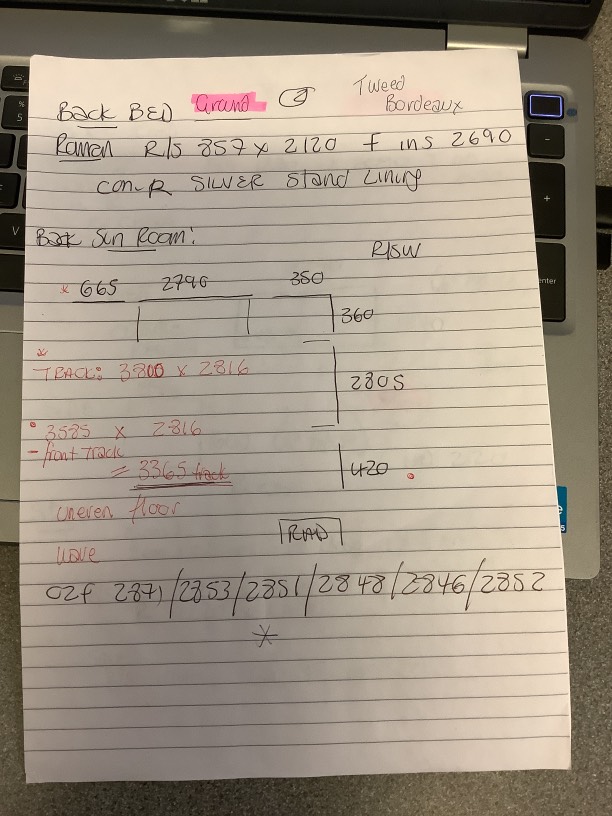 Tweed
BACK BED Grand Bordeaux
Roman R/S 857 x 2120 f ins 2690
SILVER Stand Lining
Back Sun Room:
R/SW
* 665 2796 350
360
*
TRACK: 3800 x 2816
2805
3585 x 2816
- front track
= 3365 track
420
uneven floor
RAD
wave
c2f 2871/2853/2851/2848/2846/2852
*
enter